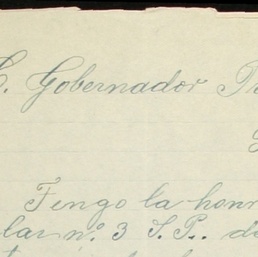 Gobernador
Tengo la honr
lar nº 3 S. P.. d